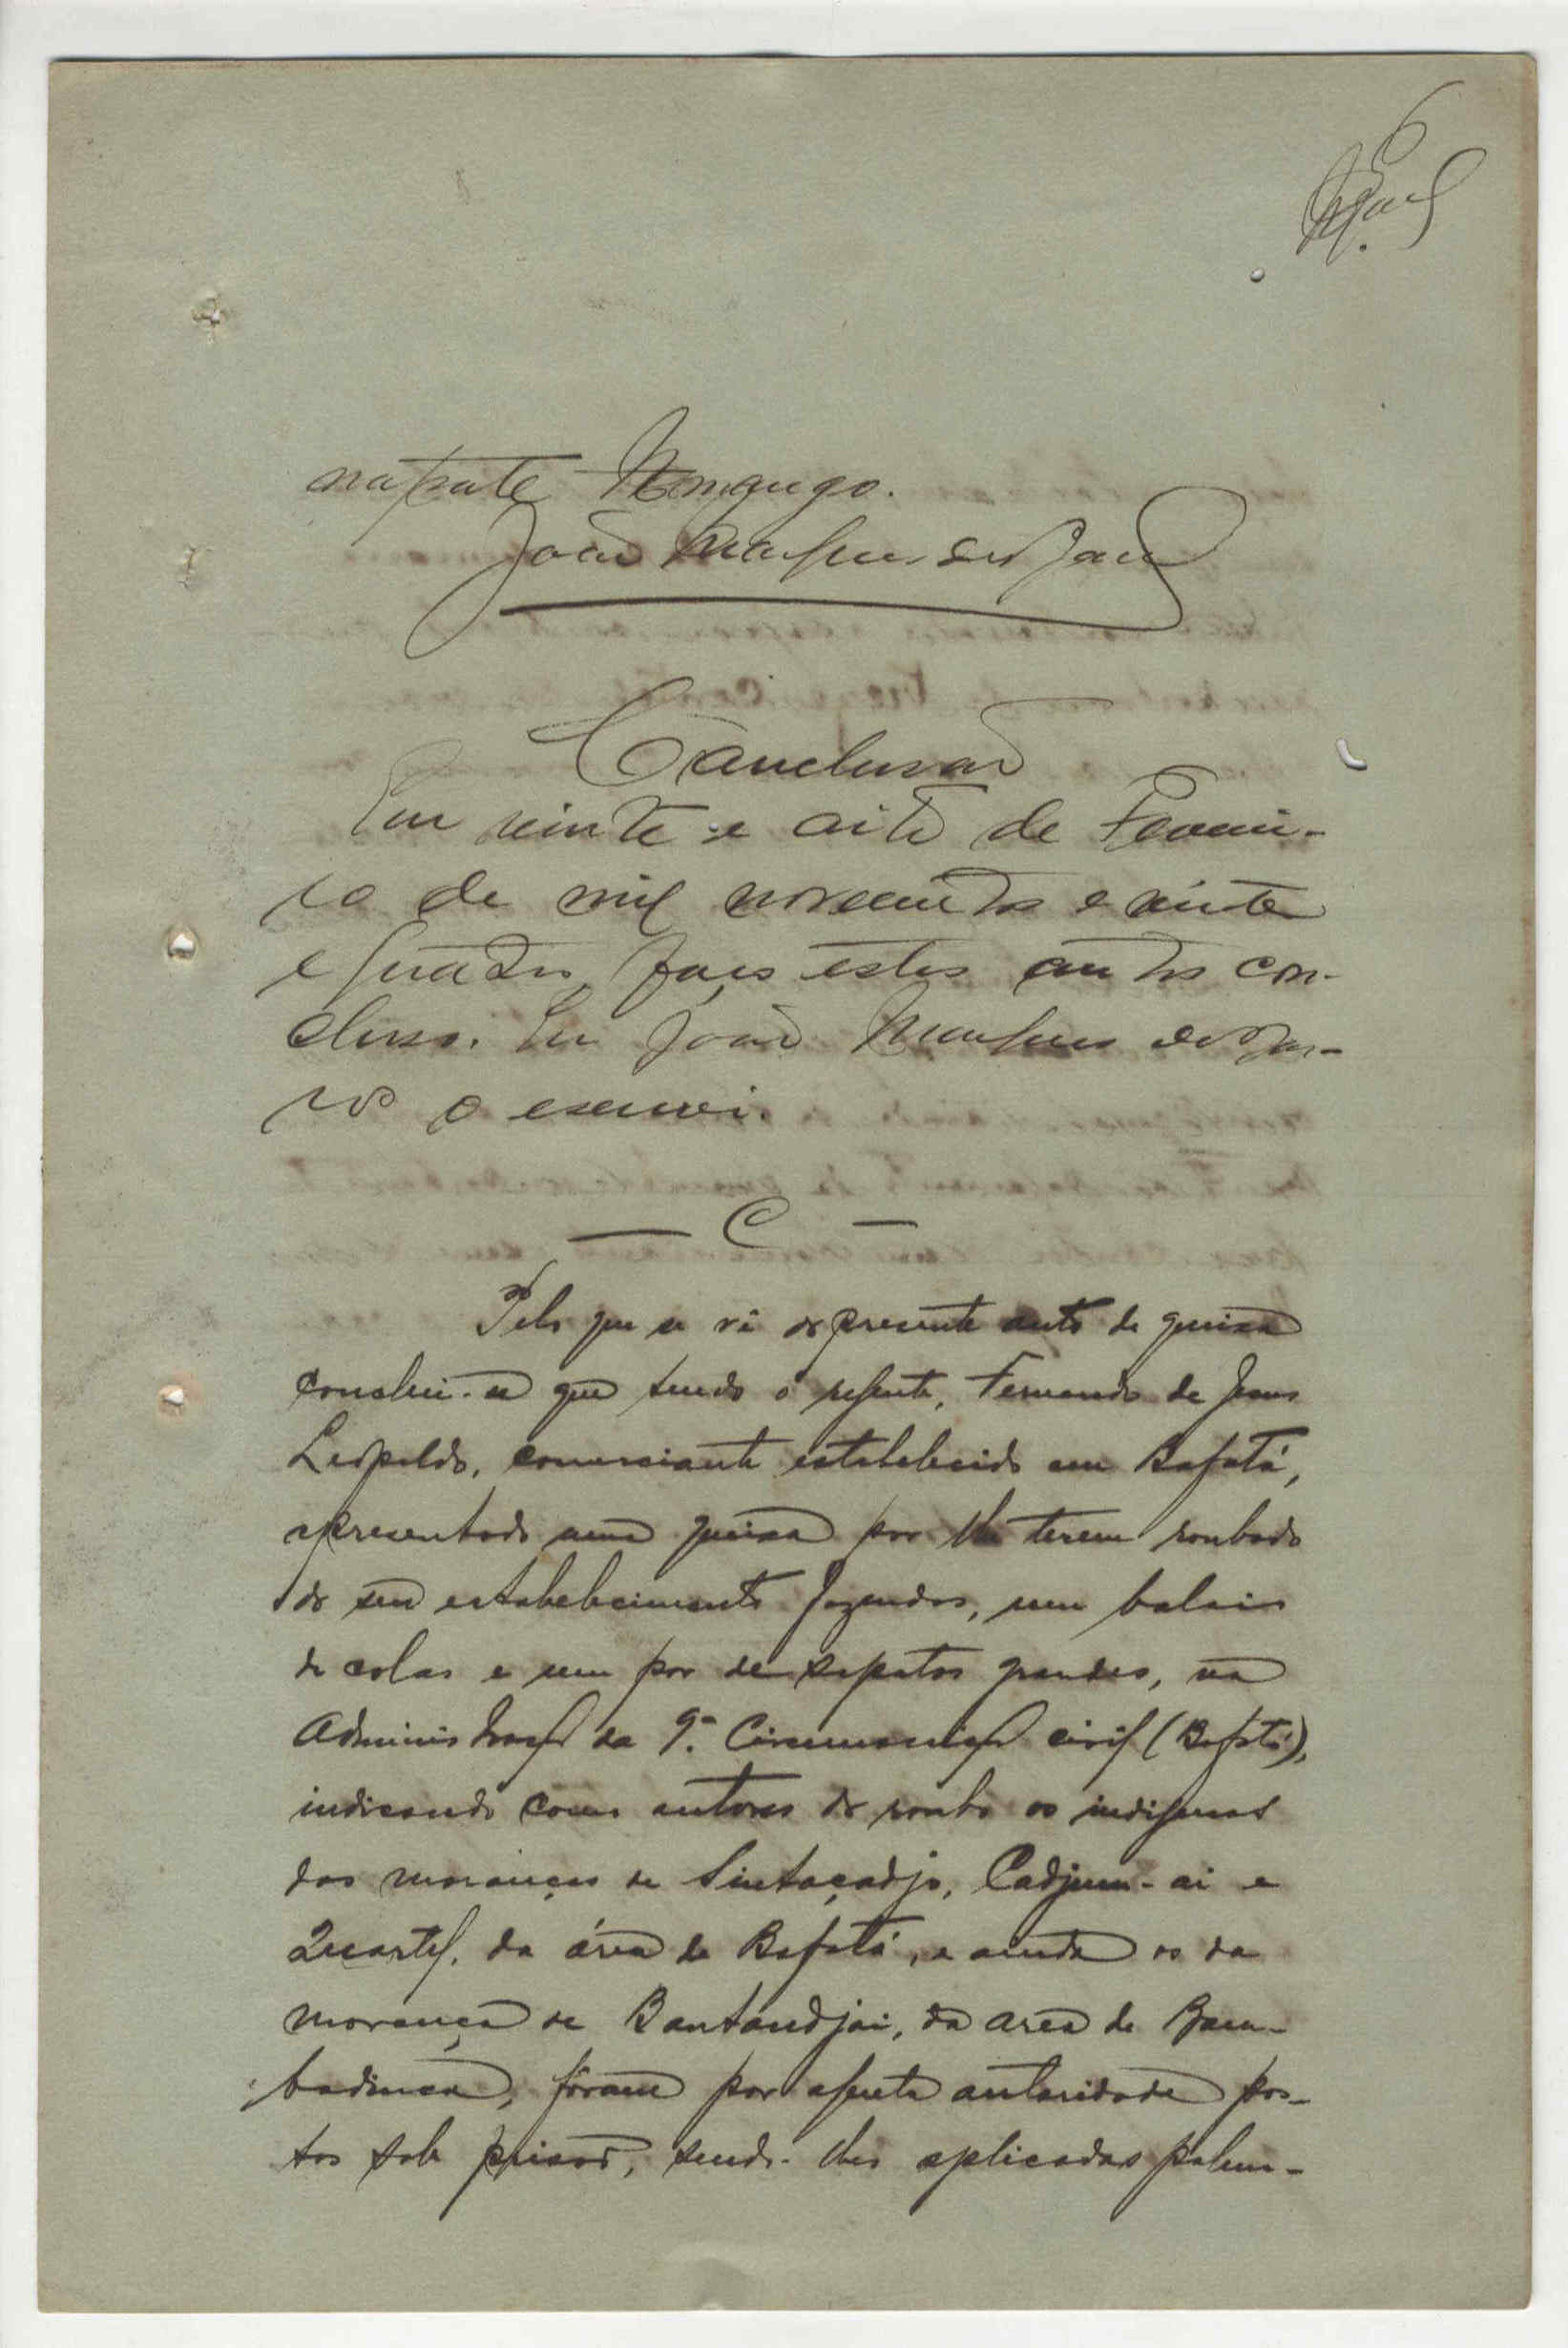 6
na parte
João Marques de Barros
Conclusão
Em vinte e oito de Feverei-
ro de mil novecentos e vinte
e quatro, faço estes autos con-
clusos. Eu João Marques de Bar-
ros o escrevi.
— C —
Pelo que se vê do presente auto de queixa
conclui-se que tendo o regente, Fernando de Jesus
Leopoldo, comerciante estabelecido em Bafatá,
apresentado uma queixa por lhe terem roubado
do seu estabelecimento fazendas, um balaio
de colas e um par de sapatos grandes, na
Administração da 9.ª Circunscrição civil (Bafatá),
indicando como autores do roubo os indigenas
das moranças de Sintaçadjo, Cadjum-ai e
Quartel, da área de Bafatá, e ainda os da
morança de Bantandjai, da area de Bam-
badinca, fôram por aquela autoridade pos-
tos sob prisão, sendo-lhes aplicadas palma-